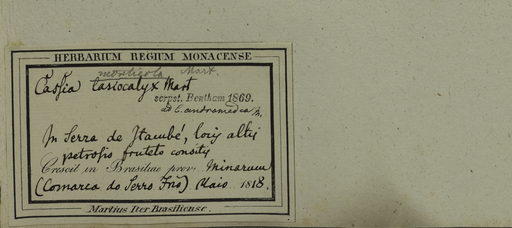 HERBARIUM REGIUM MONACENSE
monticola Mart.
Cassia lasiocalyx Mart
script. Bentham 1869.
ad C. andromedea M.
In Serra de Itambé, locis altis
petrosis frutetis consitis
Crescit in Brasiliae prov. Minarum
(Comarca do Serro Frio). Maio. 1818.
Martius Iter Brasiliense.